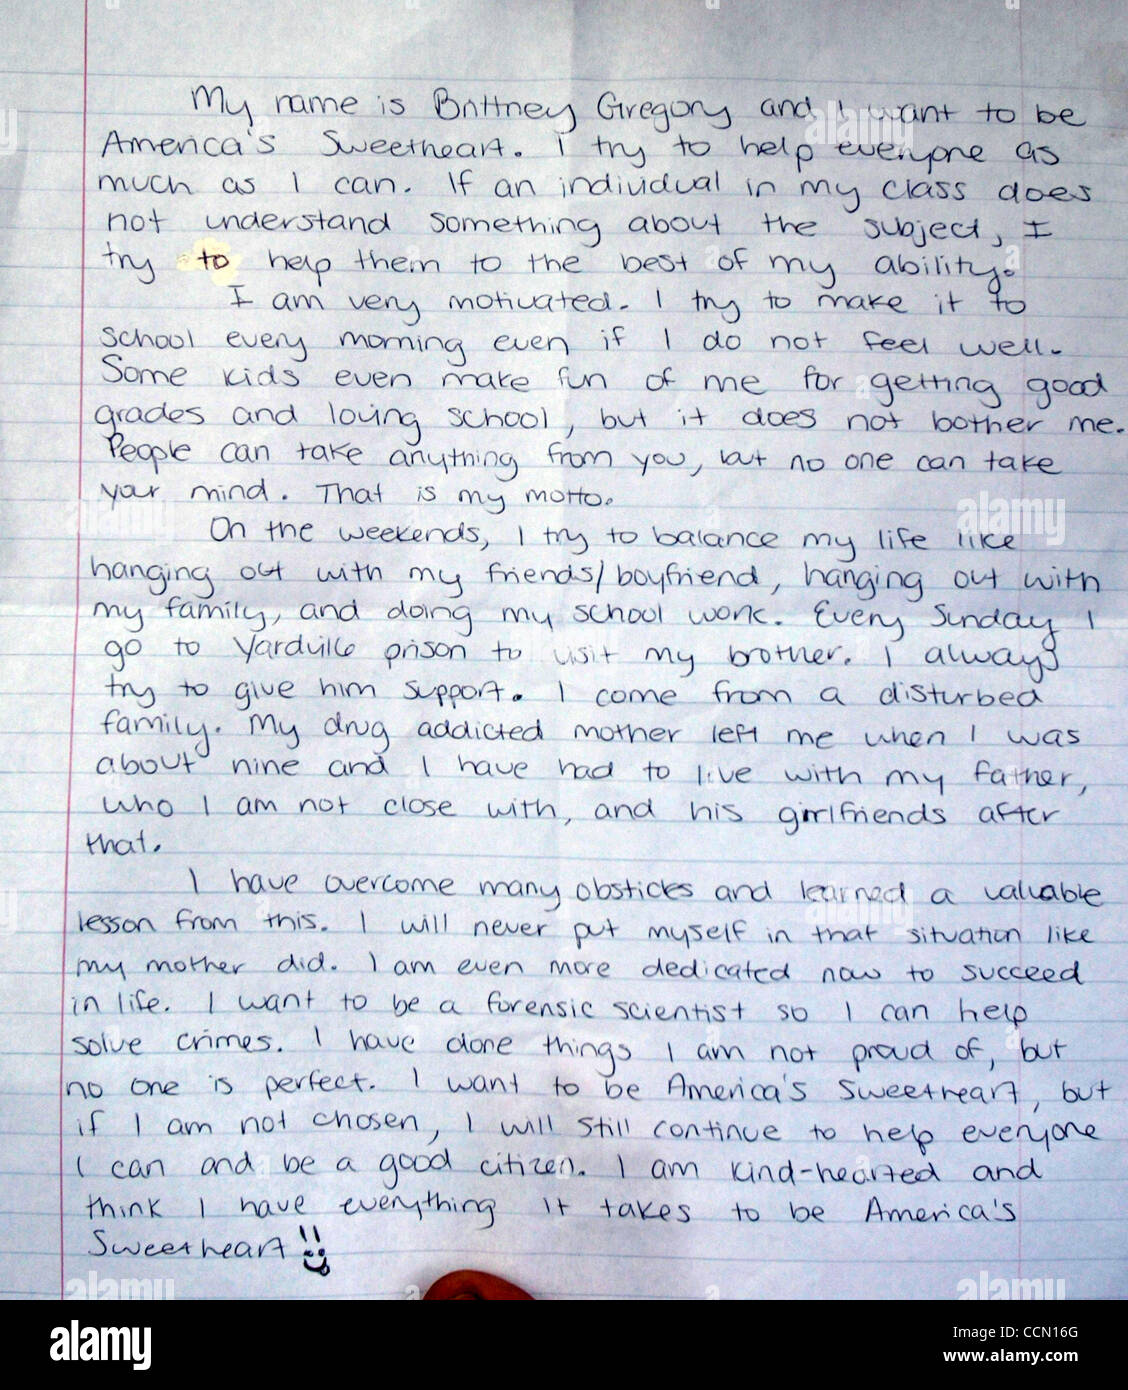 My name is Brittney Gregory and I want to be
America's Sweetheart. I try to help everyone as
much as I can. If an individual in my class does
not understand something about the subject, I
try to help them to the best of my ability.
I am very motivated. I try to make it to
school every morning even if I do not feel well.
Some kids even make fun of me for getting good
grades and loving school, but it does not bother me.
People can take anything from you, but no one can take
your mind. That is my motto.
On the weekends, I try to balance my life like
hanging out with my friends/boyfriend, hanging out with
my family, and doing my school work. Every Sunday I
go to Yardville prison to visit my brother. I always
try to give him support. I come from a disturbed
family. My drug addicted mother left me when I was
about nine and I have had to live with my father,
who I am not close with, and his girlfriends after
that.
I have overcome many obsticles and learned a valuable
lesson from this. I will never put myself in that situation like
my mother did. I am even more dedicated now to succeed
in life. I want to be a forensic scientist so I can help
solve crimes. I have done things I am not proud of, but
no one is perfect. I want to be America's Sweetheart, but
if I am not chosen, I will still continue to help everyone
I can and be a good citizen. I am kind-hearted and
think I have everything it takes to be America's
Sweetheart!!
alamy
Image ID: CCN16G
www.alamy.com